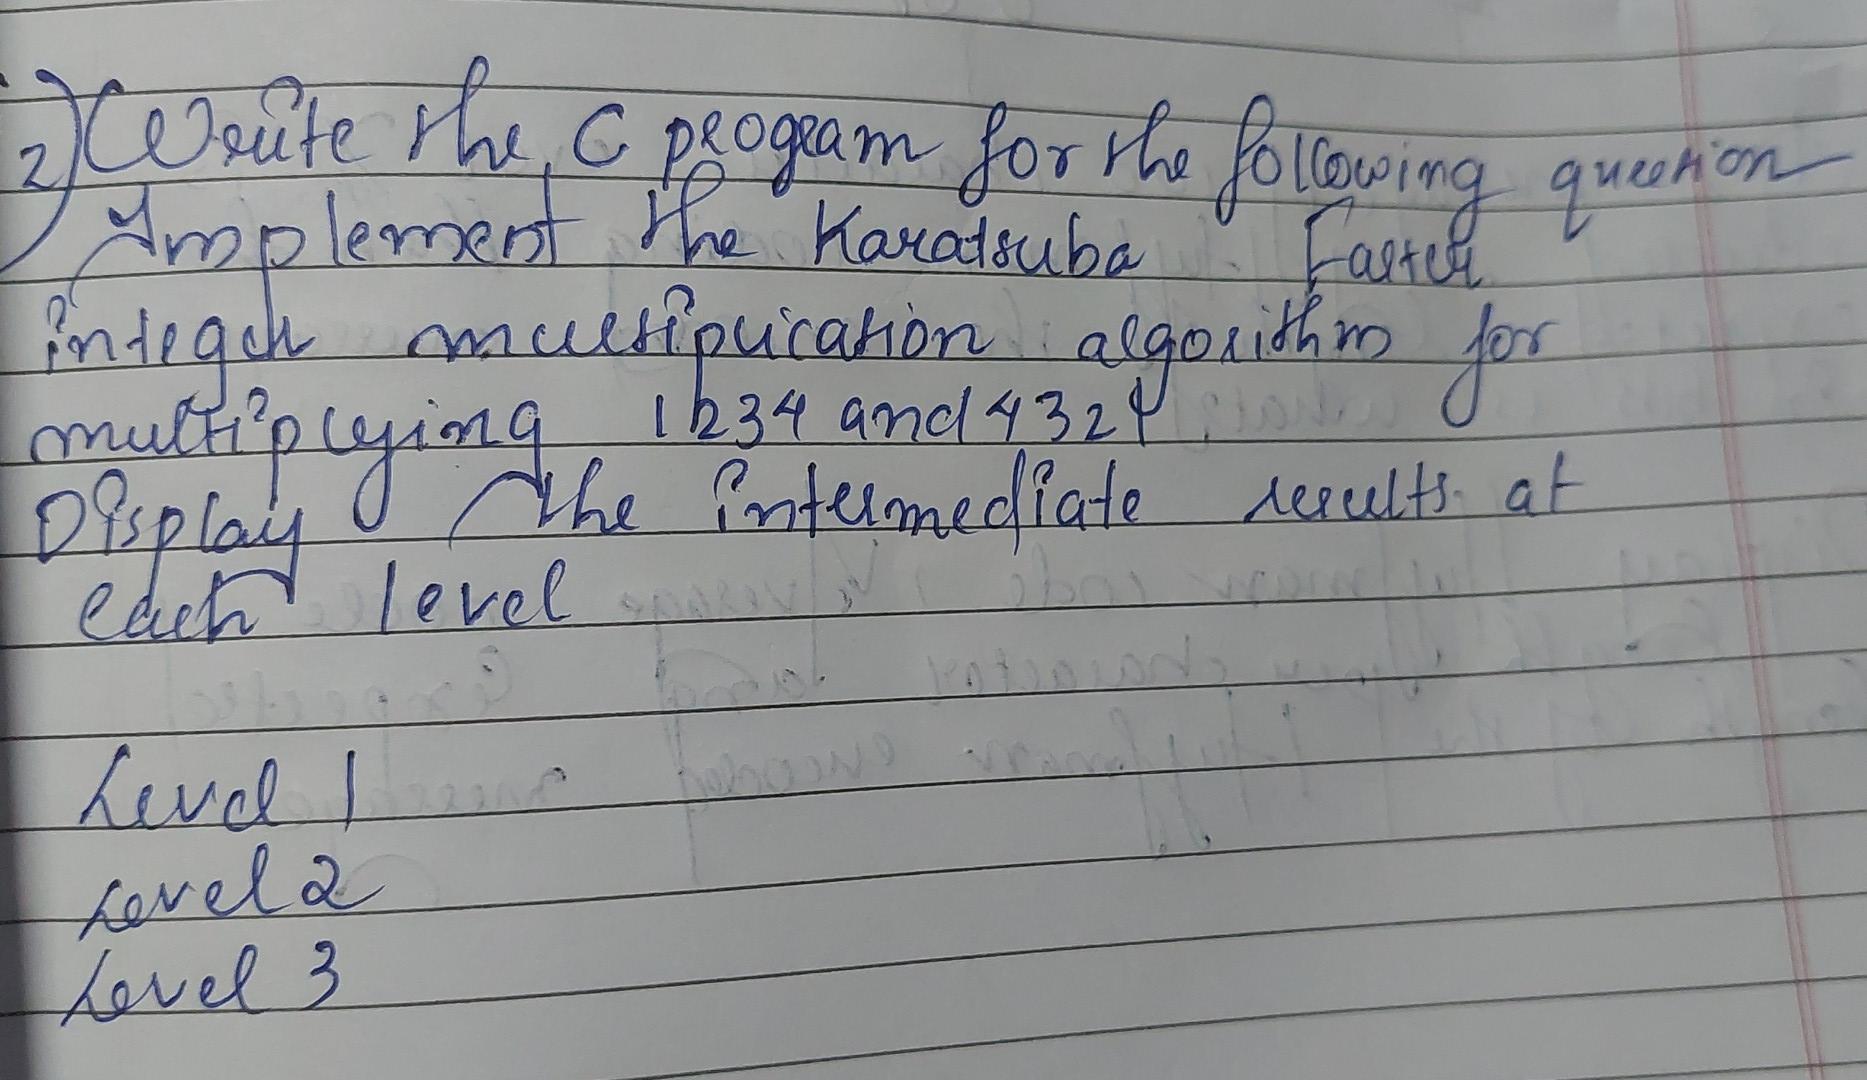 2) Write the C program for the following question
Implement the Karatsuba Faster
integer multiplication algorithm for
multiplying 1234 and 4321.
Display the intermediate results at
each level
Level 1
Level 2
Level 3